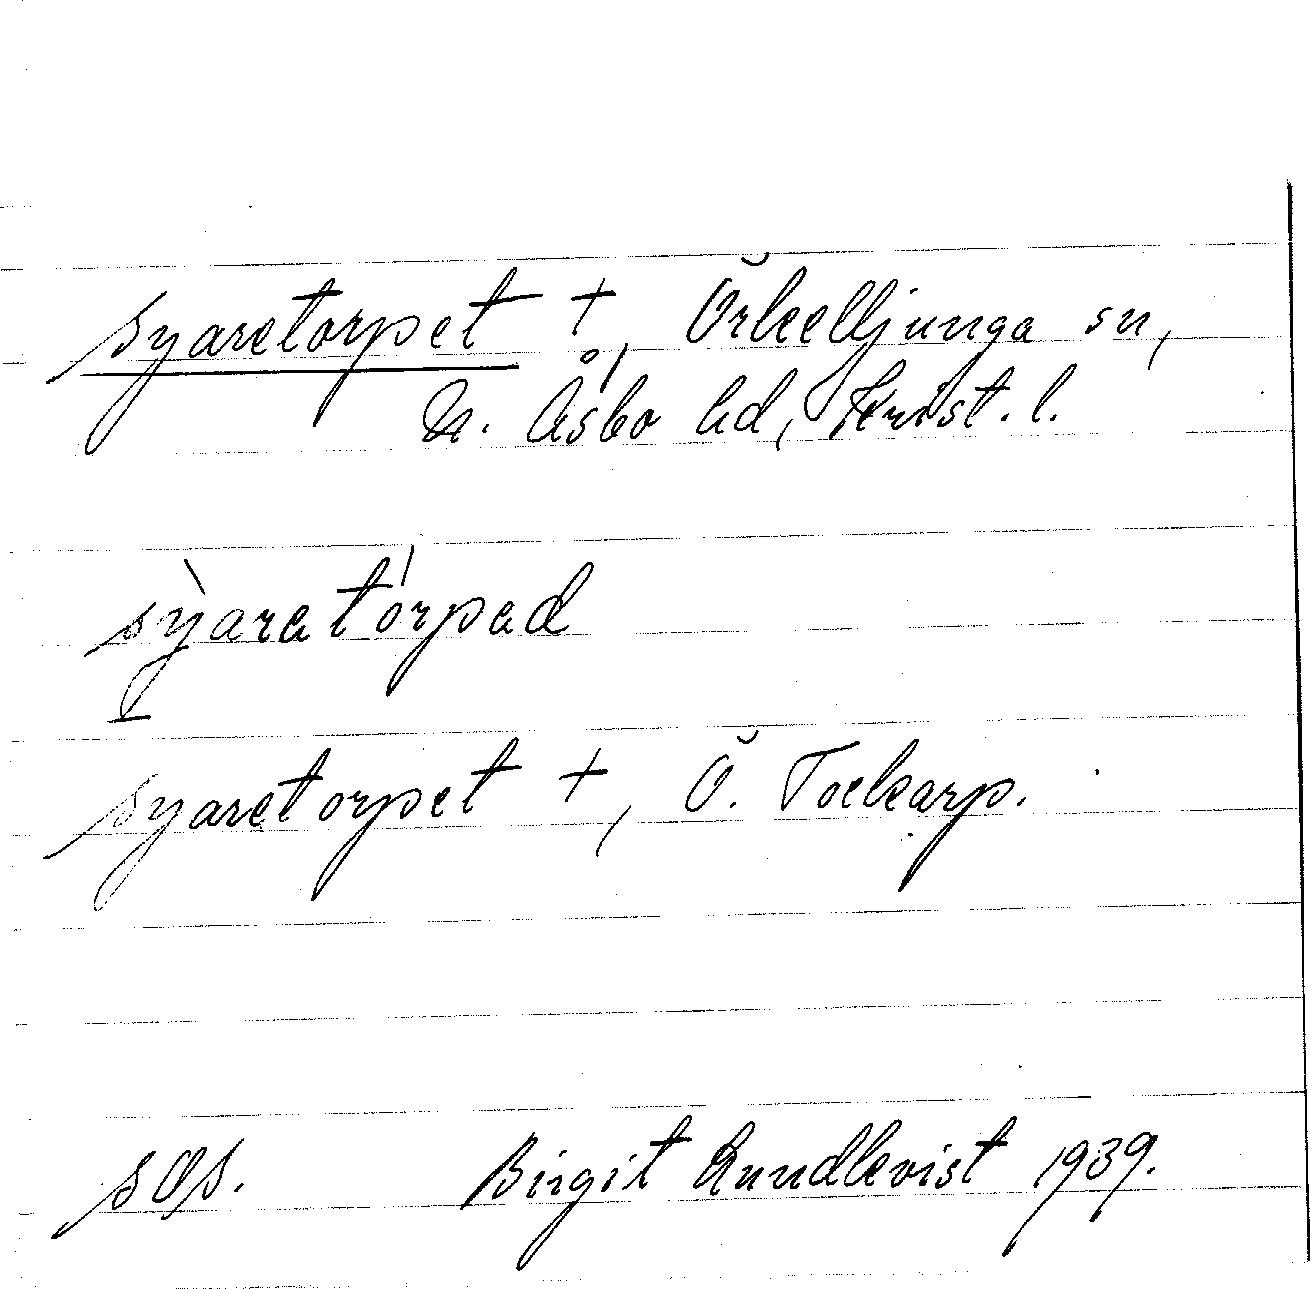 Syaretorpet +, Örkelljunga sn,
N. Åsbo hd, Krist. l.
sỳaratórpad
Syaretorpet +, Ö. Tockarp.
SOS. Birgit Rundkvist 1939.